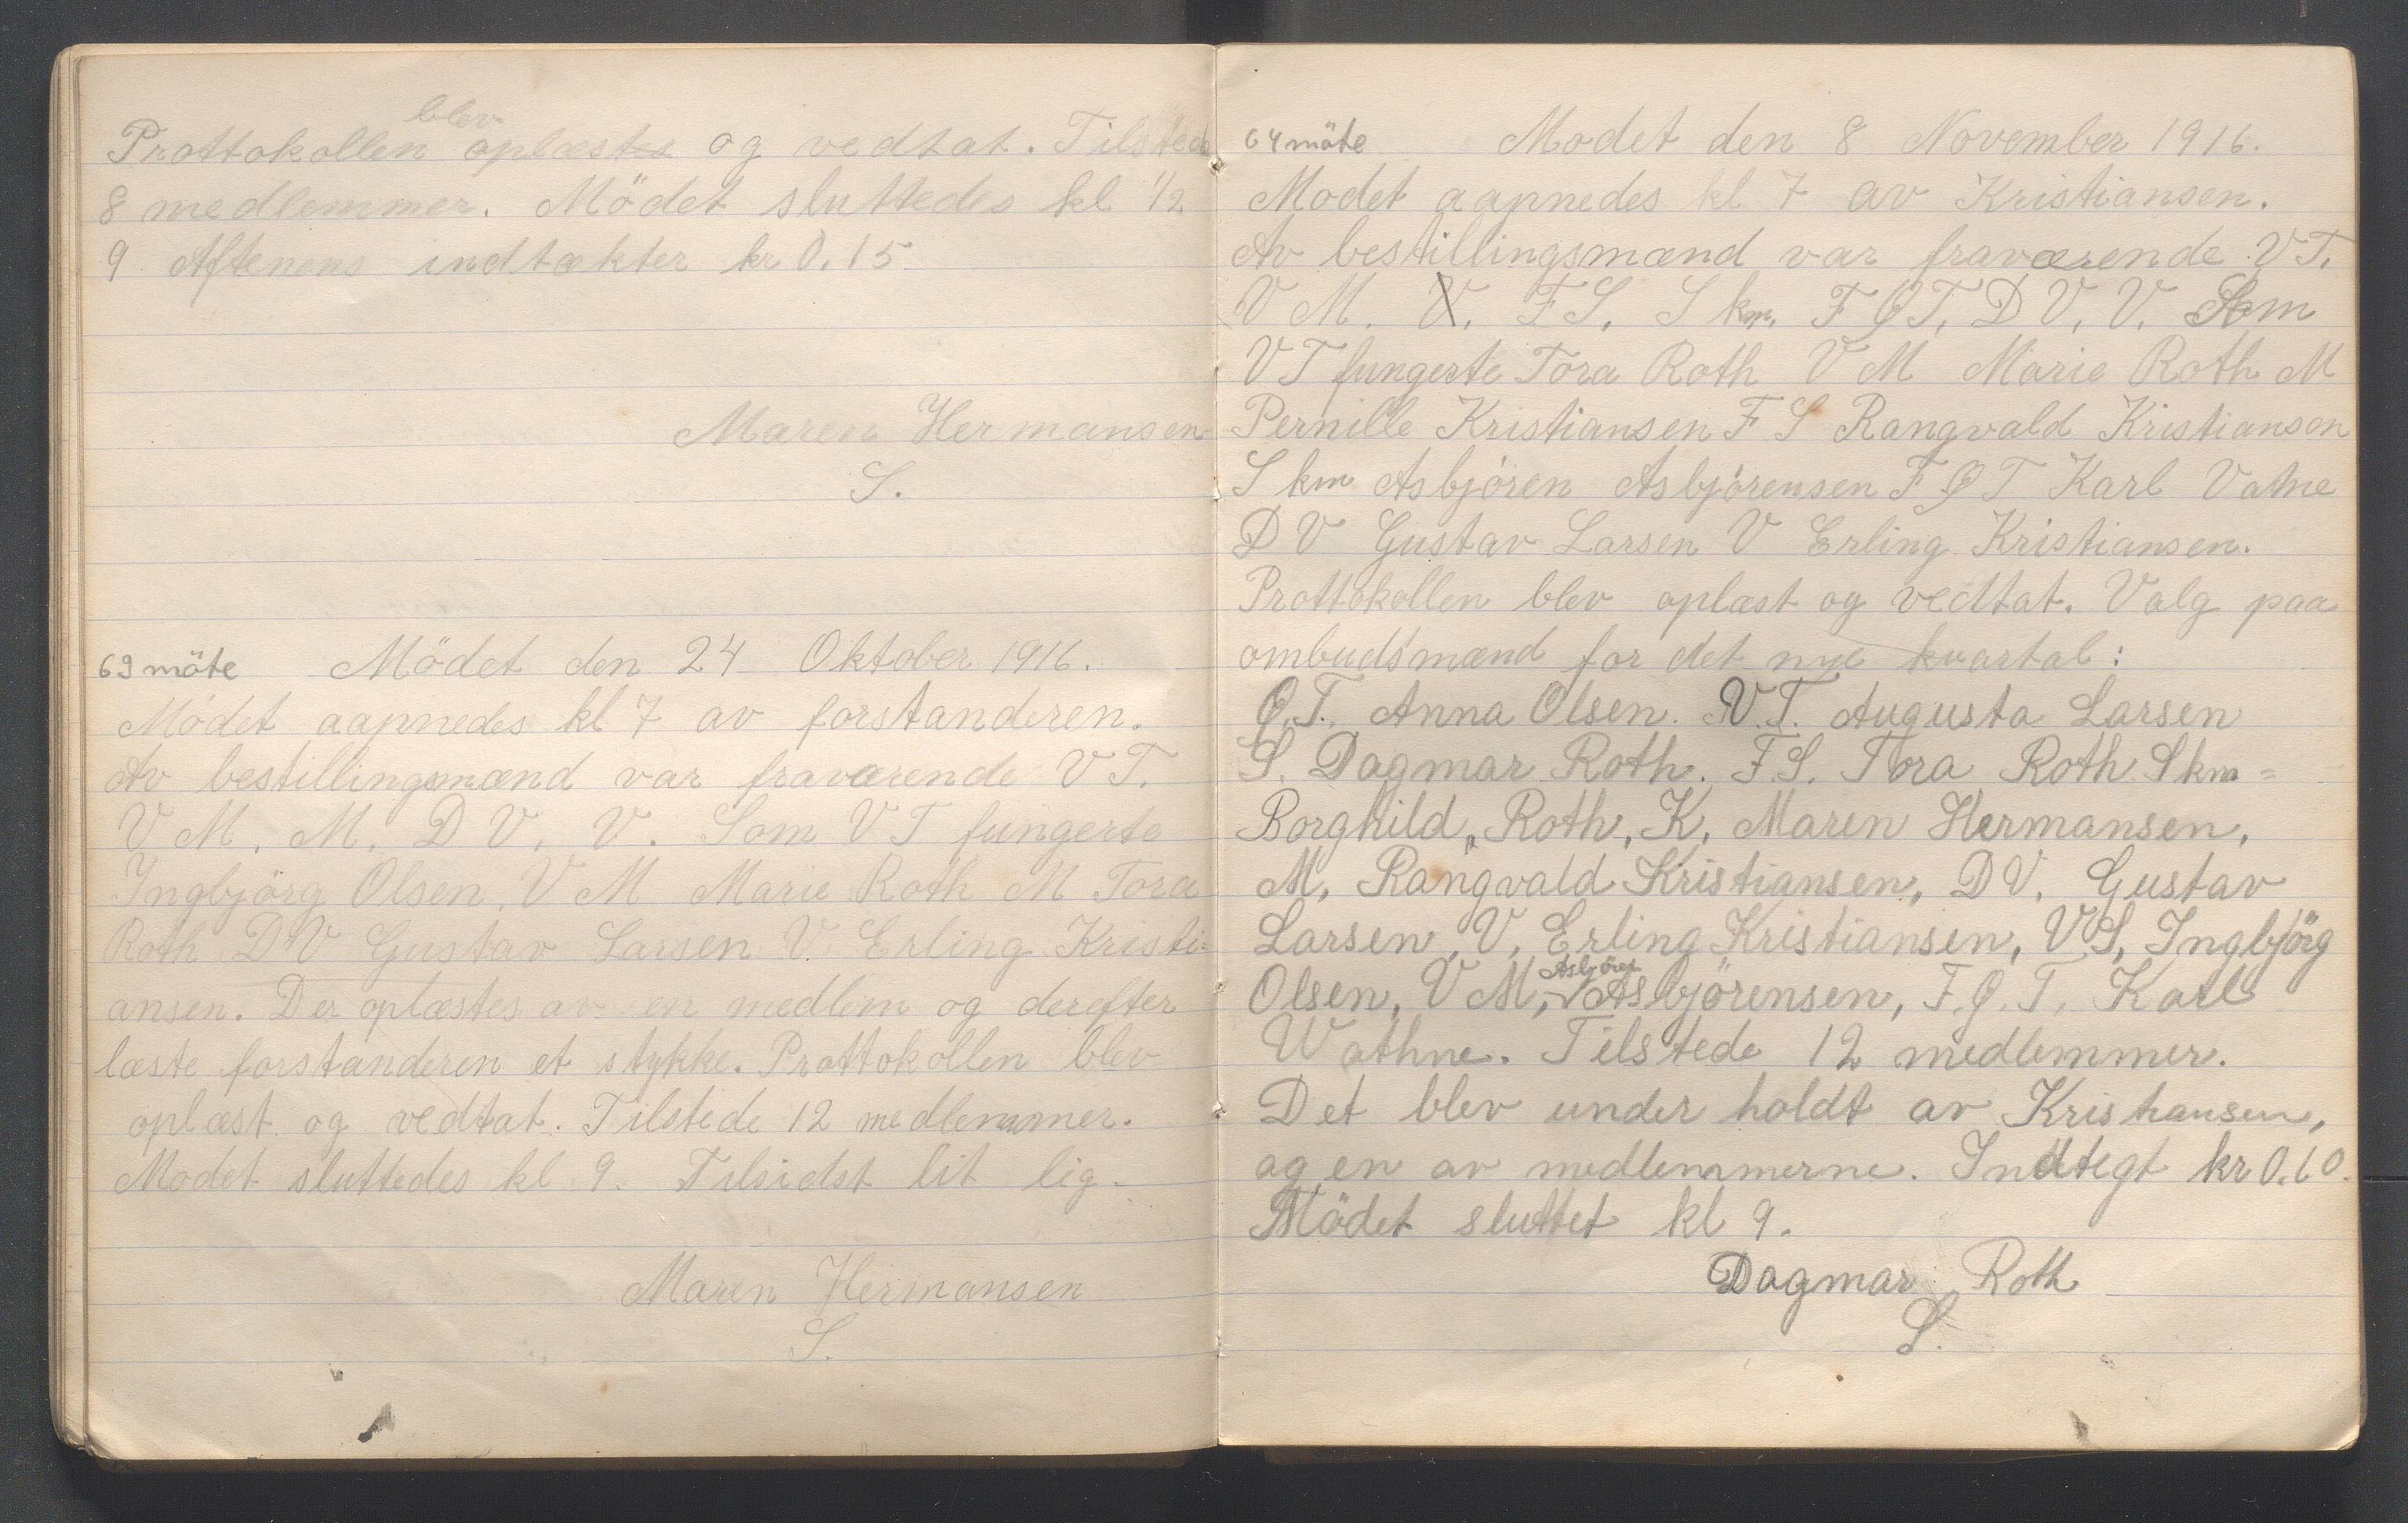 Prottokollen blev oplæstes og vedtat. Tilstede
8 medlemmer. Mödet sluttedes kl 1/2
9 Aftenens indtækter kr 0.15
Maren Hermansen
S.
63 möte Mödet den 24 Oktober 1916.
Mödet aapnedes kl 7 av forstanderen.
Av bestillingsmænd var fraværende V T.
V M, M, D V, V. Som V T fungerte
Ingbjörg Olsen, V M Marie Roth M Tora
Roth D V Gustav Larsen V Erling Kristi-
ansen. Der oplæstes av en medlem og derefter
læste forstanderen et stykke. Prottokollen blev
oplæst og vedtat. Tilstede 12 medlemmer.
Mödet sluttedes kl 9. Tilsidst lit lig.
Maren Hermansen
S.
64 möte Mödet den 8 November 1916.
Mödet aapnedes kl 7 av Kristiansen.
Av bestillingsmænd var fraværende V T.
V M. V. F S, S km, F Ø T, D V, V. Som
V T fungerte Tora Roth V M Marie Roth M
Pernille Kristiansen F S Rangvald Kristiansen
S km Asbjören Asbjörensen F Ø T Karl Vatne
D V Gustav Larsen V Erling Kristiansen.
Prottokollen blev oplæst og vedtat. Valg paa
ombudsmænd for det nye kvartal:
Ø.T. Anna Olsen. V.T. Augusta Larsen
S. Dagmar Roth. F.S. Tora Roth Skm=
Borghild, Roth, K, Maren Hermansen,
M, Rangvald Kristiansen, D V, Gustav
Larsen, V, Erling Kristiansen, V S, Ingbjörg
Olsen, V M, Asbjören Asbjörensen, F.Ø.T. Karl
Wathne. Tilstede 12 medlemmer.
Det blev under holdt av Kristiansen,
og en av medlemmerne. Indtegt kr 0.60.
Mödet sluttet kl 9.
Dagmar Roth
S.